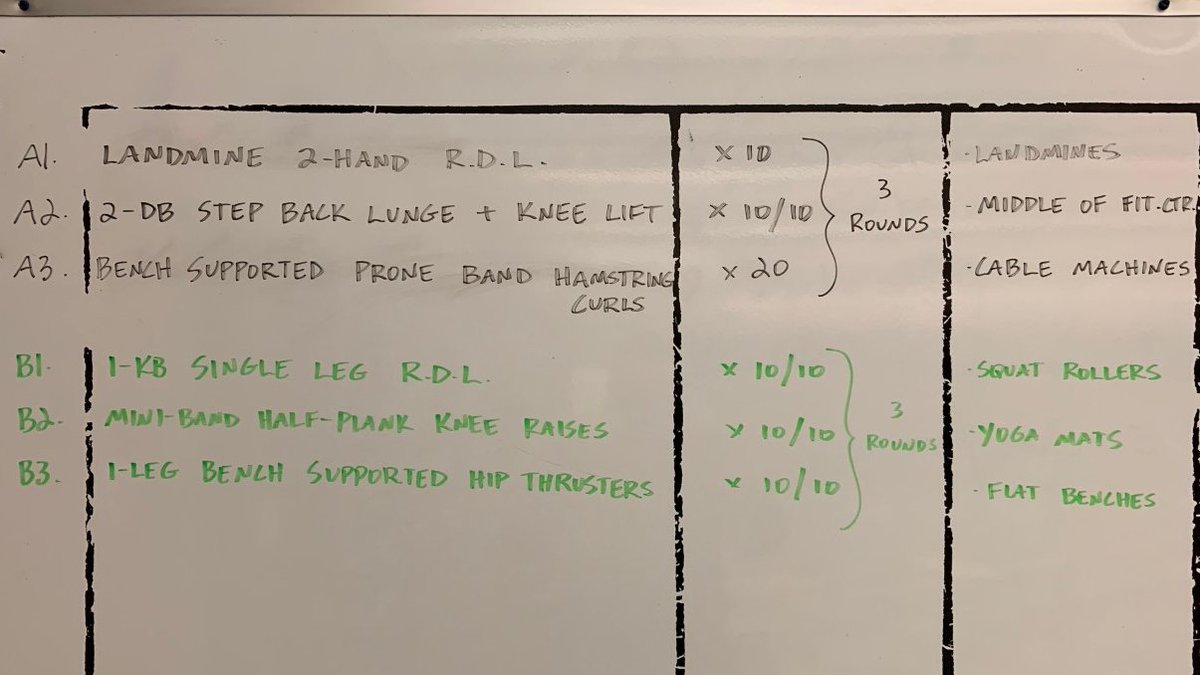 A1. LANDMINE 2-HAND R.D.L. x 10 - LANDMINES
A2. 2-DB STEP BACK LUNGE + KNEE LIFT x 10/10 3 ROUNDS - MIDDLE OF FIT.CTR.
A3. BENCH SUPPORTED PRONE BAND HAMSTRING CURLS x 20 - CABLE MACHINES
B1. 1-KB SINGLE LEG R.D.L. x 10/10 - SQUAT ROLLERS
B2. MINI-BAND HALF-PLANK KNEE RAISES x 10/10 3 ROUNDS - YOGA MATS
B3. 1-LEG BENCH SUPPORTED HIP THRUSTERS x 10/10 - FLAT BENCHES